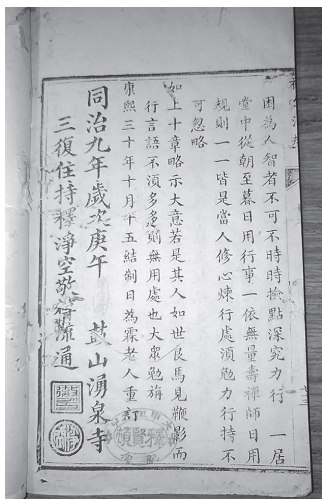 因為人智者不可不時時撿點深究力行　一居
堂中從朝至暮日用行事一依無量壽禪師日用
規則一一皆是當人修心煉行處須勉力行持不
可忽略
如上十章略示大意若是其人如世良馬見鞭影而
行言語不須多多則無用處也大衆勉旃
康熙三十年十月十五結制日為霖老人重訂
同治九年歲次庚午　鼓山湧泉寺
三復住持釋淨空敬督䟽通